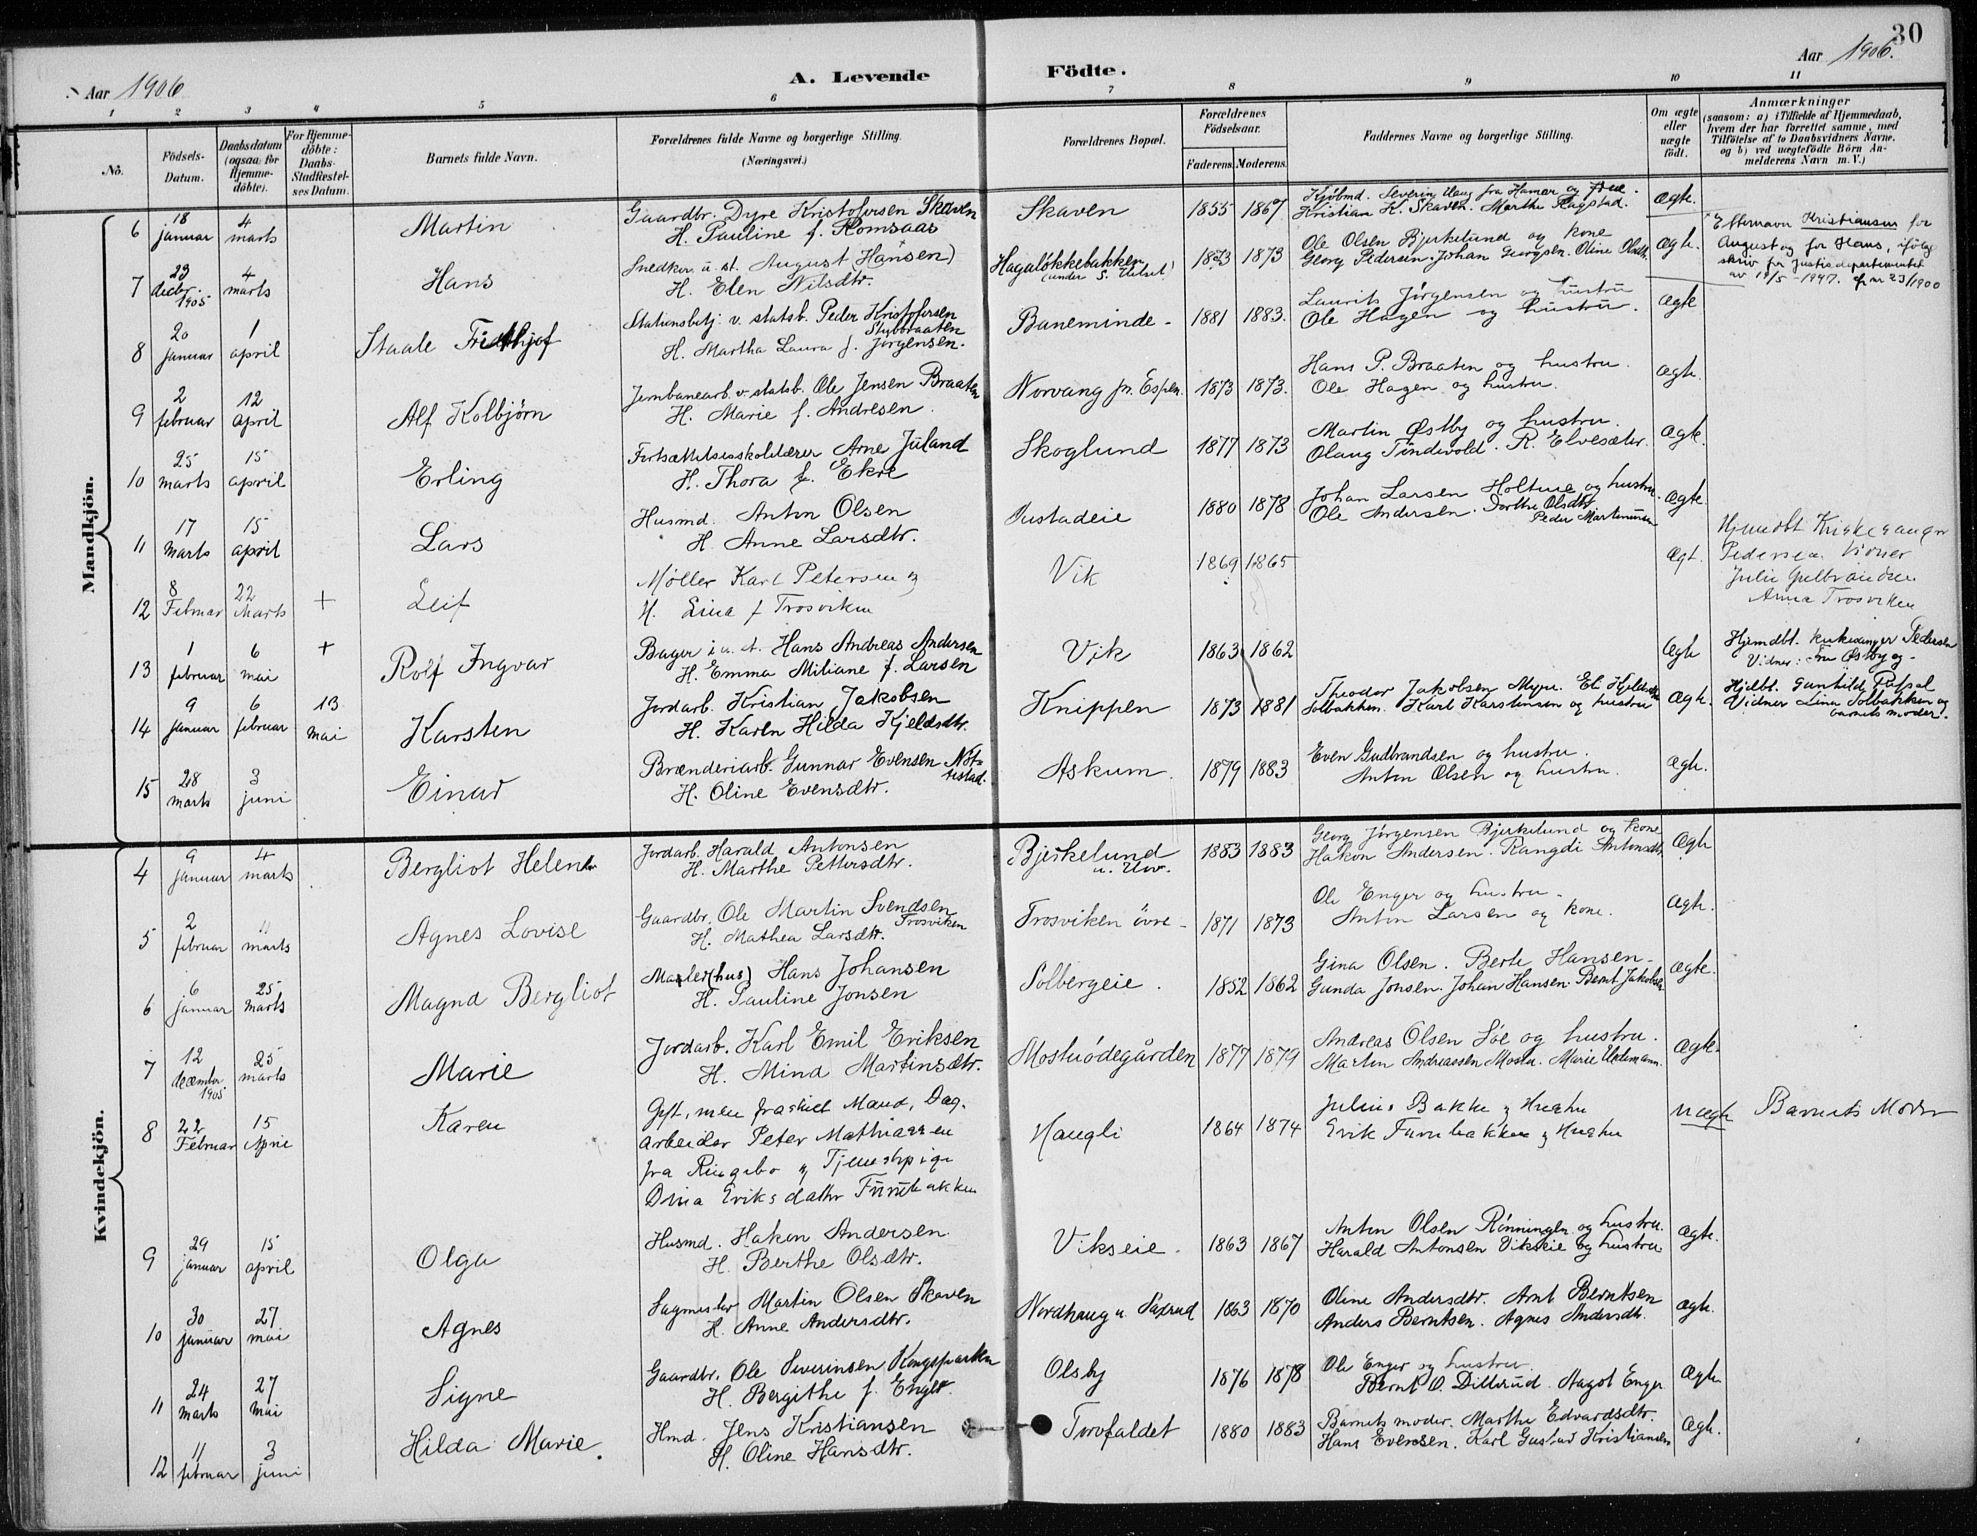 30
Aar 1906
A. Levende Födte.
Aar 1906.
1 2 3 4 5 6 7 8 9 10 11
No.
Födsels-Datum.
Daabsdatum (ogsaa for Hjemme-döbte).
For Hjemme-döbte: Daabs-Stadfæstel-ses Datum.
Barnets fulde Navn.
Forældrenes fulde Navne og borgerlige Stilling. (Næringsvei.)
Forældrenes Bopæl.
Forældrenes Födselsaar.
Faderens. Moderens.
Faddernes Navne og borgerlige Stilling.
Om ægte eller uægte födt.
Anmærkninger
(saasom: a) i Tilfælde af Hjemmedaab, hvem der har forrettet samme, med Tilföielse af to Daabsvidners Navne, og b) ved uægtefödte Börn An-melderens Navn m. V.)
Mandkjön.
6 18 januar 4 marts Martin Gaardbr. Dyre Kristofersen Skaven
H. Pauline f. Romsaas Skaven 1855 1867 Kjöbmd. Severin Haug fra Hamar og frue.
Kristian K. Skaven. Marthe Ragstad. Ægte.
7 23 decbr. 1905 4 marts Hans Snedker u. st. August Hansen)
H. Elen Nilsdtr. Hagaløkkebakken 1873 Ole Olsen Bjerkelund og kone
Georg Pedersen. Johan Georgsen. Oline Olsdtr. Ægte.
Efternavn Kristiansen for
August og for Hans, ifølge
skriv fra Justisdepartementet
av 19/5-1947.
8 20 januar 1 april Staale Fridthjof Stationsbetj. v. statsb. Peder Kristofersen
Stubbraaten
H. Martha Laura f. Jørgensen. Baneminde - 1881 1883. Laurits Jørgensen og hustru
Ole Hagen og hustru. Ægte
9 2 februar 12 april Alf Kolbjørn Jernbanearb. v. statsb. Ole Jensen Braaten
H. Marie f. Andresen. Norvang pr. Espen 1873 1873. Hans P. Braaten og hustru.
Ole Hagen og hustru. Ægte.
10 25 marts 15 april Erling Fortsættelsesskolelærer Arne Juland
H. Thora f. Ekre Skoglund 1877 1873 Martin Østby og hustru.
Olaug Tindevold. R. Elvesæter. Ægte.
11 17 marts 15 april Lars Husmd. Anton Olsen
H. Anne Larsdtr. 1880 1878 Johan Larsen Holtene og hustru.
Ole Andersen. Dorthe Olsdtr.
Peder Martinusen Ægte.
12 8 Februar 22 Marts + Leif Møller Karl Petersen og
H. Lina f Trosviken Vik 1869 1865 Ægt.
Hjemdbt Kirkesanger
Pedersen Vidner
Julie Gulbrandsen
Anna Trosviken
13 1 februar 6 mai + Rolf Ingvar Bager i u. st. Hans Andreas Andersen
H. Emma Miliane f. Larsen Vik 1863 1862 Ægte
Hjemdbt. kirkesanger Pedersen
Vidner: Fru Østby og -
14 9 januar 6 februar 13 mai Karsten Jordarb. Kristian Jakobsen
H. Karen Hilda Kjeldsdtr. Knippen 1873 1881 Theodor Jakobsen Myre.
Solbakken. Karl Karstensen og hustru Ægte.
Hjdbt. Gunhild
Vidner Lina Solbakken og
barnets moder.
15 28 marts 3 juni Einar Brænderiarb. Gunnar Evensen
H. Oline Evensdtr. Askum. 1879 1883 Even Gudbrandsen og hustru.
Anton Olsen og hustru. Ægte.
Kvindekjön.
4 9 januar 4 marts Bergliot Helene Jordarb. Harald Antonsen
H. Marthe Pettersdtr. Bjerkelund 1883 1883 Georg Jørgensen Bjerkelund og kone
Hakon Andersen. Rangdi Antonsdtr. Ægte
5 2 februar 11 marts Agnes Lovise Gaardbr. Ole Martin Svendsen
Trosviken
H. Mathea Larsdtr. Trosviken övre - 1871 1873 Ole Enger og hustru -
Anton Larsen og kone. Ægte.
6 6 januar 25 marts Magna Bergliot Maaler (hus) Hans Johansen
H. Pauline Jonsen Solbergeie. 1852 1862 Gina Olsen. Berte Hansen -
Gunda Jonsen. Johan Hansen. Bernt Jakobsen Ægte.
7 12 december 1905 25 marts Marie Jordarb. Karl Emil Eriksen
H. Mina Martinsdtr. Mostuödegården 1877 1879 Andreas Olsen Löe og hustru.
Martin Andreassen Mostu. Marie Uldemann. Ægte.
8 22 Februar 15 April Karen Gift, men fraskilt Mand, Dag-
arbeider Peter Mathiassen
fra Ringebo og Tjenestepige
Dina Eriksdatter Furubakken Haugli 1864 1874 Julius Bakke og Hustru
Erik Furubakken og Hustru Uægte Barnets Moder
9 29 januar 15 april Olga Husmd. Hakon Andersen
H. Berthe Olsdtr. Vikseie. 1863 1867 Anton Olsen Rönningen og hustru.
Harald Antonsen Vikseie og hustru Ægte.
10 30 januar 27 mai Agnes Sagmester Martin Olsen Skaven
H. Anne Andersdtr. Nordhaug u. Saxrud 1863 1870 Oline Andersdtr. Arnt Berntsen
Anders Berntsen. Agnes Andersdtr. Ægte.
11 24 marts 27 mai Signe Gaardbr. Ole Severinsen Kongsparten
H. Bergithe f. Enger. Olsby 1876 1878 Ole Enger og hustru
Bernt O. Dillerud. Aagot Enger Ægte
12 11 februar 3 juni Hilda Marie. Hmd. Jens Kristiansen
H. Oline Hansdtr. Torvfaldet 1880 1883 Barnets moder. Marthe Edvardsdtr.
Hans Evensen. Karl Gustav Kristiansen Ægte.